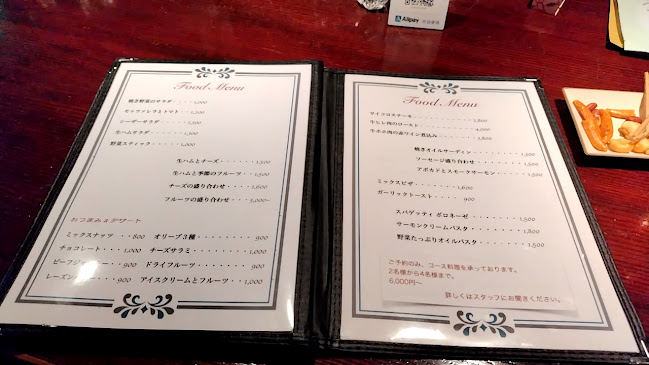 Alipay
Food Menu
焼き野菜のサラダ・・・・1,200
モッツァレラとトマト・・1,200
シーザーサラダ・・・・・1,200
生ハムサラダ・・・・・・1,300
野菜スティック・・・・・1,000
生ハムとチーズ・・・・・・1,500
生ハムと季節のフルーツ・・1,500
チーズの盛り合わせ・・・・1,600
フルーツの盛り合わせ・・・3,000~
おつまみ&デザート
ミックスナッツ・・800 オリーブ3種・・・・・・900
チョコレート・・・1,000 チーズサラミ・・・・・1,000
ビーフジャーキー・・900 ドライフルーツ・・・・900
レーズン・・・・900 アイスクリームとフルーツ・・1,000
Food Menu
サイコロステーキ・・・・・・・2,800
牛ヒレ肉のロースト・・・・・・4,000
牛ホホ肉の赤ワイン煮込み・・・2,800
焼きオイルサーディン・・・・・1,200
ソーセージ盛り合わせ・・・・・1,500
アボカドとスモークサーモン・・1,500
ミックスピザ・・・・・・1,600
ガーリックトースト・・・・900
スパゲッティ ボロネーゼ・・・・1,500
サーモンクリームパスタ・・・・1,800
野菜たっぷりオイルパスタ・・・1,500
ご予約のみ、コース料理を承っております。
2名様から4名様まで。
6,000円~
詳しくはスタッフにお聞きください。